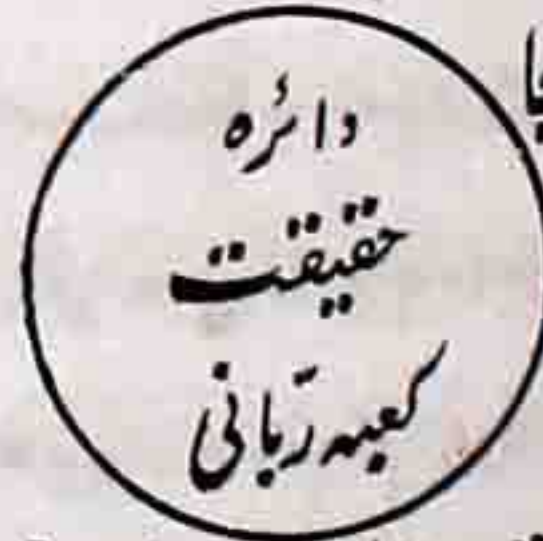 دائرہ
حقیقت
کعبہ ربانی